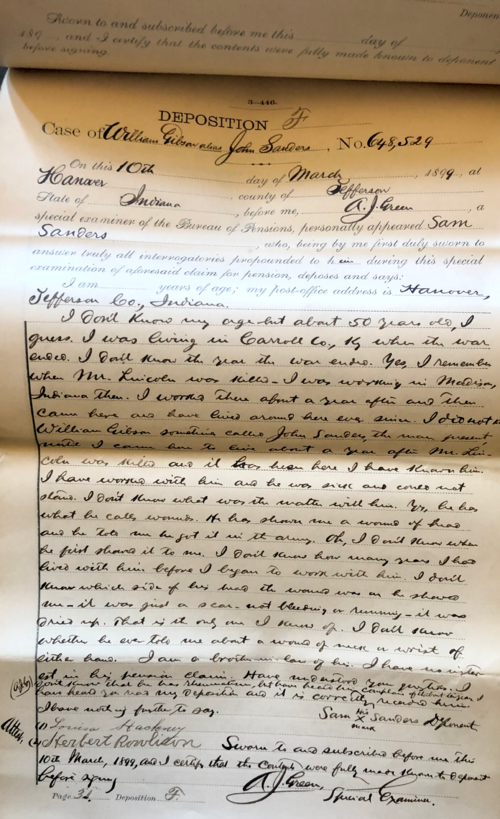 Deponen
Sworn to and subscribed before me this day of
189 , and I certify that the contents were fully made known to deponent
before signing.
3-446.
DEPOSITION F
Case of William Gibson alias John Sanders, No. 648,529
On this 10th day of March, 1899, at
Hanover, county of Jefferson
State of Indiana, before me, A. J. Green, a
special examiner of the Bureau of Pensions, personally appeared Sam
Sanders, who, being by me first duly sworn to
answer truly all interrogatories propounded to him during this special
examination of aforesaid claim for pension, deposes and says:
I am years of age; my post-office address is Hanover,
Jefferson Co., Indiana.
I don't know my age but about 50 years old, I
guess. I was living in Carroll Co, Ky when the war
ended. I don't know the year the war ended. Yes, I remember
when Mr. Lincoln was killed - I was working in Madison,
Indiana then. I worked there about a year after and then
came here and have lived around here ever since. I did not
William Gibson sometime called John Sanders the man present
until I came here to live about a year after Mr. Lin-
coln was killed and it has been here I have known him.
I have worked with him and he was sick and could not
stand. I don't know what was the matter with him. Yes, he has
what he calls wounds. He has shown me a wound of head
and he told me he got it in the army. Oh, I don't know when
he first showed it to me. I don't know how many years I had
lived with him before I began to work with him. I don't
know which side of his head the wound was on he showed
me - it was just a scar - not bleeding or running - it was
dried up. That is the only one I know of. I don't know
whether he ever told me about a wound of neck or wrist or
either hand. I am a brother-in-law of his. I have no inter-
est in his pension claim. Have understood your questions. I
have heard you read my deposition and it is correctly recorded herein
I have nothing further to say.
Sam X Sanders Deponent
his
mark
Attest,
(1) Louisa Hackney
(2) Herbert Rowlison
Sworn to and subscribed before me this
10th March, 1899, and I certify that the contents were fully made known to deponent
before signing
A. J. Green,
Special Examiner.
Page 31 Deposition F.